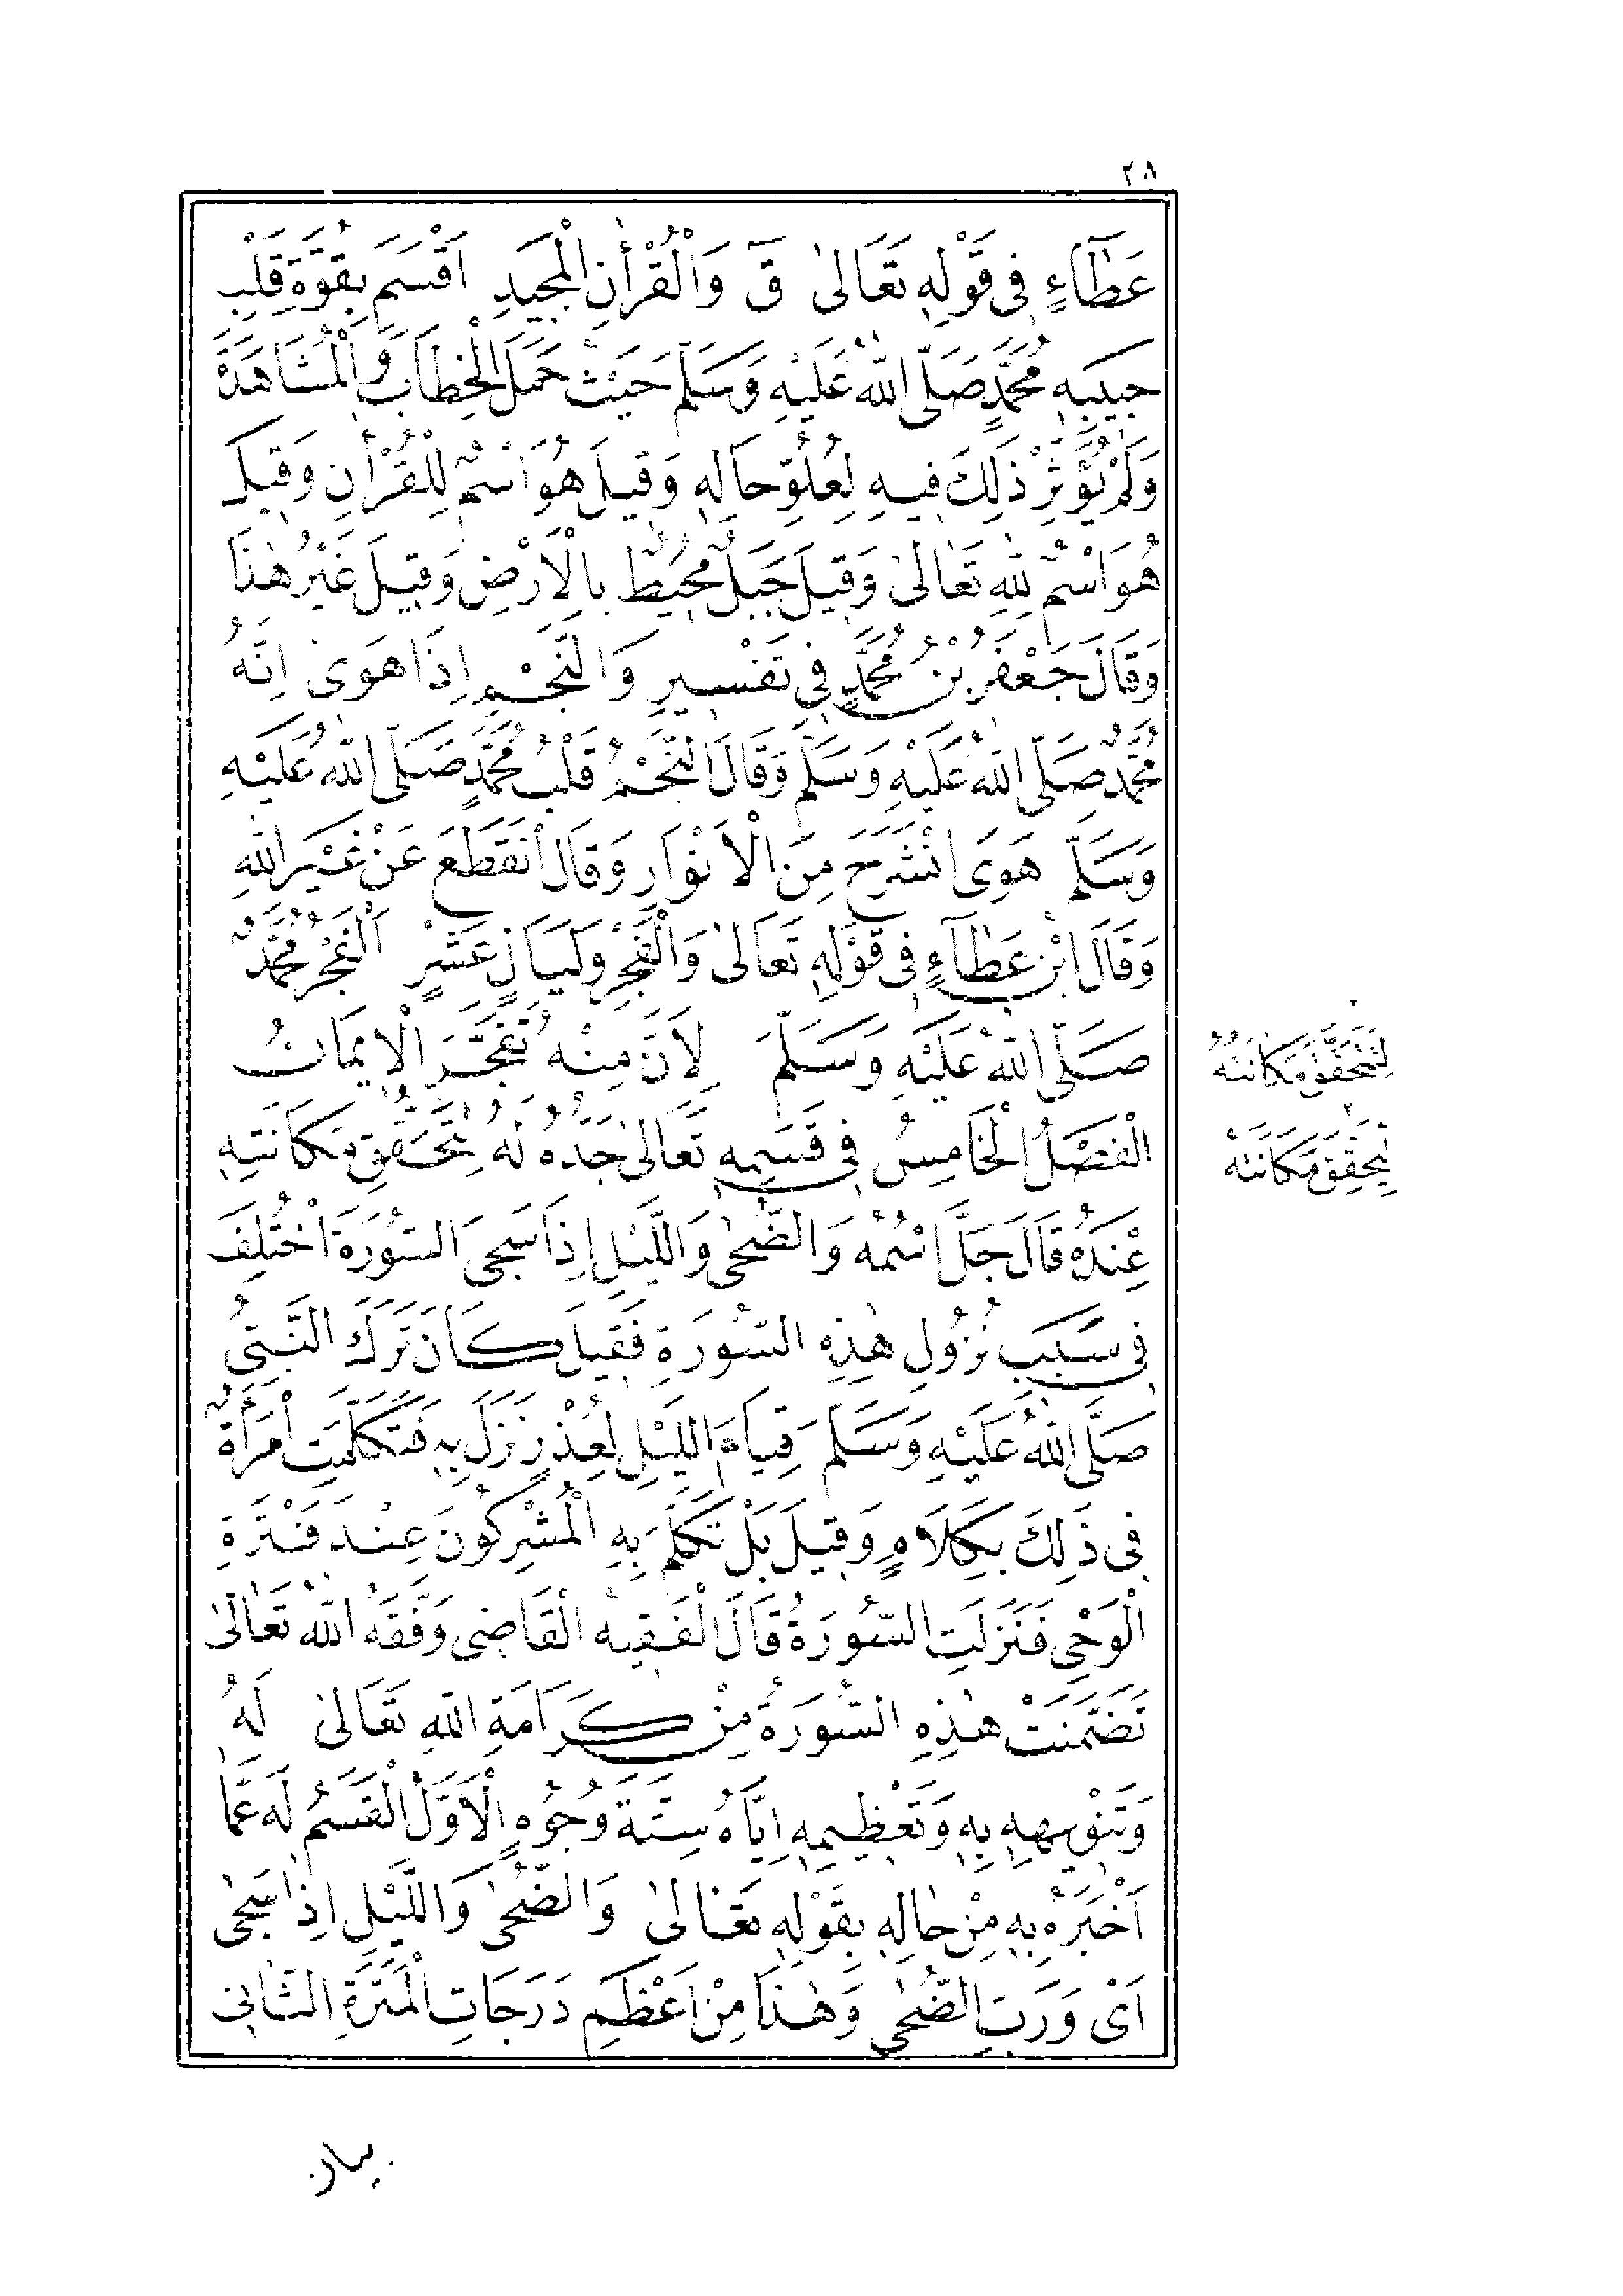 ٢٨
عَطَآءٍ فِى قَوْلِهِ تَعَالىٰ قٓ وَالْقُرْأٰنِ الْمَجِيدِ اَقْسَمَ بِقُوَّةِ قَلْبِ
حَبِيبِهِ مُحَمَّدٍ صَلَّى اللّٰهُ عَلَيْهِ وَسَلَّمَ حَيْثُ حَمَلَ الْخِطَابَ وَالْمُشَاهَدَةَ
وَلَمْ يُؤَثِّرْ ذٰلِكَ فِيهِ لِعُلُوِّ حَالِهِ وَقِيلَ هُوَ اسْمٌ لِلْقُرْأٰنِ وَقِيلَ
هُوَ اسْمٌ لِلّٰهِ تَعَالىٰ وَقِيلَ جَبَلٌ مُحِيطٌ بِالْاَرْضِ وَقِيلَ غَيْرُ هٰذَا
وَقَالَ جَعْفَرُ بْنُ مُحَمَّدٍ فِى تَفْسِيرِ وَالنَّجْمِ اِذَا هَوىٰ اِنَّهُ
مُحَمَّدٌ صَلَّى اللّٰهُ عَلَيْهِ وَسَلَّمَ وَقَالَ النَّجْمُ قَلْبُ مُحَمَّدٍ صَلَّى اللّٰهُ عَلَيْهِ
وَسَلَّمَ هَوَى انْشَرَحَ مِنَ الْاَنْوَارِ وَقَالَ انْقَطَعَ عَنْ غَيْرِ اللّٰهِ
وَقَالَ ابْنُ عَطَآءٍ فِى قَوْلِهِ تَعَالىٰ وَالْفَجْرِ وَلَيَالٍ عَشْرٍ اَلْفَجْرُ مُحَمَّدٌ
صَلَّى اللّٰهُ عَلَيْهِ وَسَلَّمَ لِاَنَّ مِنْهُ تَفَجَّرَ الْاِيمَانُ
الْفَصْلُ الْخَامِسُ فِى قَسَمِهِ تَعَالىٰ جَدُّهُ لَهُ بِتَحَقُّقِ مَكَانَتِهِ
عِنْدَهُ قَالَ جَلَّ اسْمُهُ وَالضُّحىٰ وَاللَّيْلِ اِذَا سَجىَ السُّورَةَ اخْتُلِفَ
فِى سَبَبِ نُزُولِ هٰذِهِ السُّورَةِ فَقِيلَ كَانَ تَرَكَ النَّبِىُّ
صَلَّى اللّٰهُ عَلَيْهِ وَسَلَّمَ قِيَامَ اللَّيْلِ لِعُذْرٍ نَزَلَ بِهِ فَتَكَلَّمَتِ امْرَأَةٌ
فِى ذٰلِكَ بِكَلَامٍ وَقِيلَ بَلْ تَكَلَّمَ بِهِ الْمُشْرِكُونَ عِنْدَ فَتْرَةِ
الْوَحْىِ فَنَزَلَتِ السُّورَةُ قَالَ الْفَقِيهُ الْقَاضِى وَفَّقَهُ اللّٰهُ تَعَالىٰ
تَضَمَّنَتْ هٰذِهِ السُّورَةُ مِنْ كَرَامَةِ اللّٰهِ تَعَالىٰ لَهُ
وَتَنْوِيهِهِ بِهِ وَتَعْظِيمِهِ اِيَّاهُ سِتَّةَ وُجُوهٍ الْاَوَّلُ الْقَسَمُ لَهُ عَمَّا
اَخْبَرَهُ بِهِ مِنْ حَالِهِ بِقَوْلِهِ تَعَالىٰ وَالضُّحىٰ وَاللَّيْلِ اِذَا سَجىٰ
اَىْ وَرَبِّ الضُّحىٰ وَهٰذَا مِنْ اَعْظَمِ دَرَجَاتِ الْمَبَرَّةِ الثَّانِى
لِتَحَقُّقِ مَكَانَتِهِ
بِتَحْقِيقِ مَكَانَتِهِ
بيان